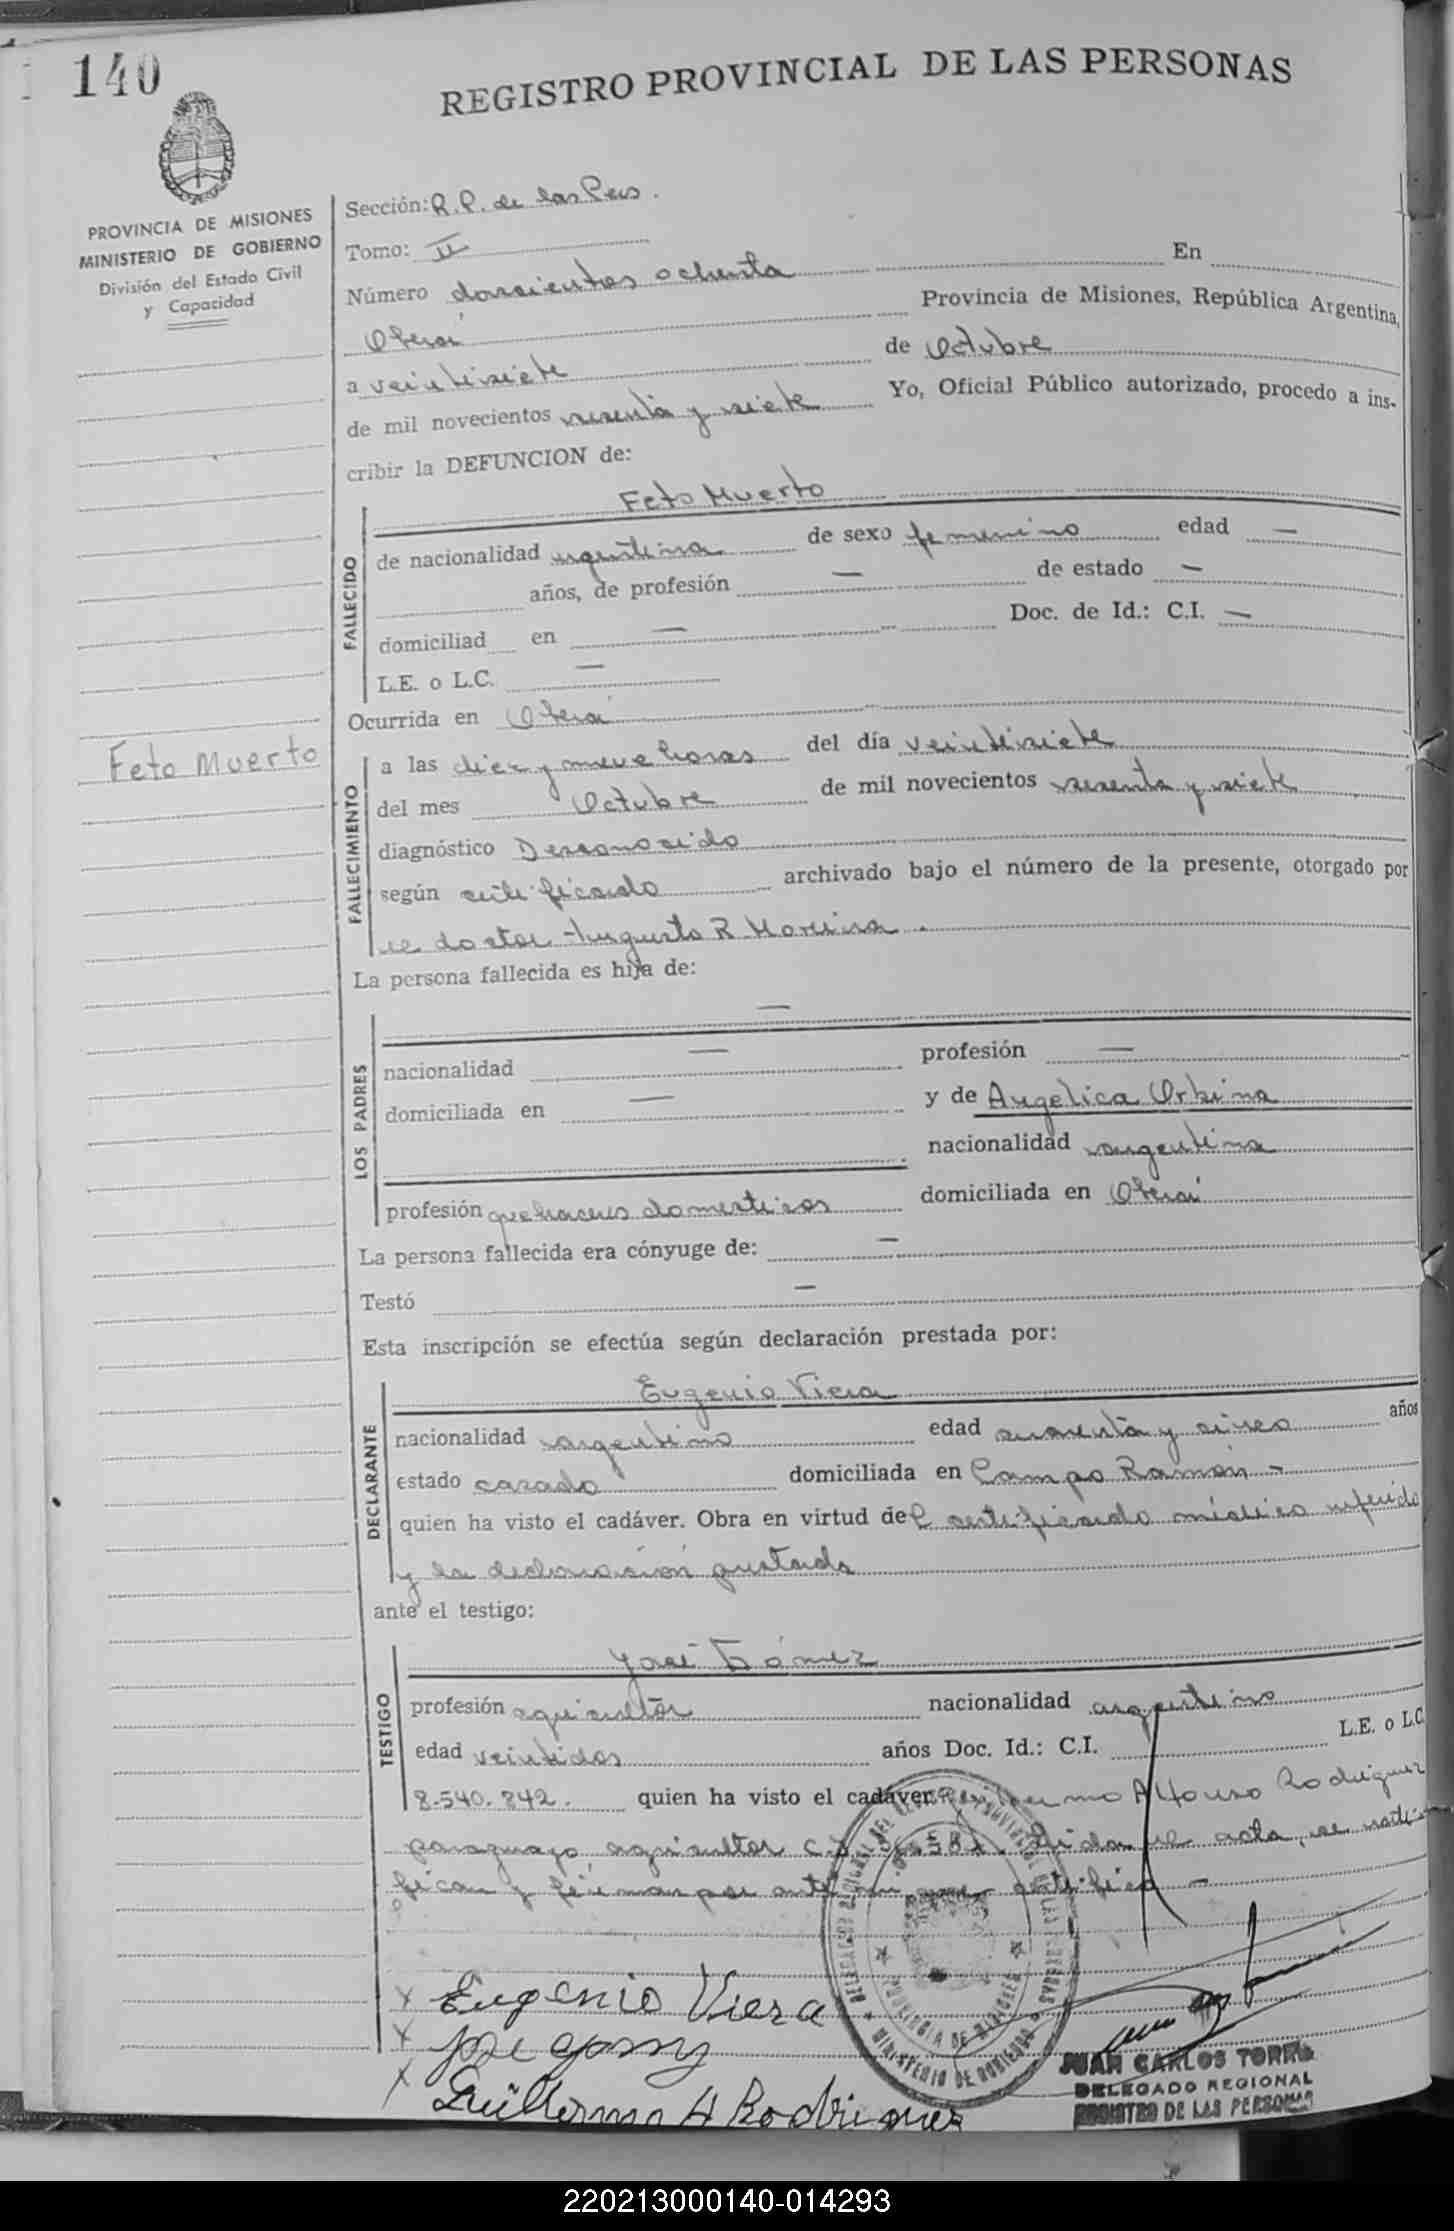 140
REGISTRO PROVINCIAL DE LAS PERSONAS
PROVINCIA DE MISIONES
MINISTERIO DE GOBIERNO
División del Estado Civil
y Capacidad
Sección: R.P. de las Pers.
Tomo: II
Número doscientos ochenta En
Oberá Provincia de Misiones, República Argentina,
a veintisiete de Octubre
de mil novecientos sesenta y siete Yo, Oficial Público autorizado, procedo a ins-
cribir la DEFUNCION de:
Feto Muerto
FALLECIDO
de nacionalidad argentina de sexo femenino edad —
años, de profesión — de estado —
domiciliad en — Doc. de Id.: C.I. —
L.E. o L.C. —
Ocurrida en Oberá
Feto Muerto
FALLECIMIENTO
a las diez y nueve horas del día veintisiete
del mes Octubre de mil novecientos sesenta y siete
diagnóstico Desconocido
según certificado archivado bajo el número de la presente, otorgado por
el doctor Augusto R Moreira.
La persona fallecida es hija de:
—
LOS PADRES
nacionalidad — profesión —
domiciliada en — y de Angelica Orbina
nacionalidad argentina
profesión quehaceres domesticos domiciliada en Oberá
La persona fallecida era cónyuge de: —
Testó —
Esta inscripción se efectúa según declaración prestada por:
Eugenio Viera
DECLARANTE
nacionalidad argentino edad cuarenta y cinco años
estado casado domiciliada en Campo Ramón -
quien ha visto el cadáver. Obra en virtud del certificado médico referido
y la declaración prestada
ante el testigo:
José Gómez
TESTIGO
profesión agricultor nacionalidad argentino
edad veintidos años Doc. Id.: C.I. L.E. o L.C.
8.540.842. quien ha visto el cadáver Guillermo Alfonso Rodriguez
paraguayo, agricultor C.I. Leida el acta, se ratifi-
fican y firman por ante mi que certifico -
Eugenio Viera
Jose gomz
Guillermo A Rodriguez
PROVINCIA DE MISIONES
MINISTERIO DE GOBIERNO
JUAN CARLOS TORRES
DELEGADO REGIONAL
REGISTRO DE LAS PERSONAS
220213000140-014293